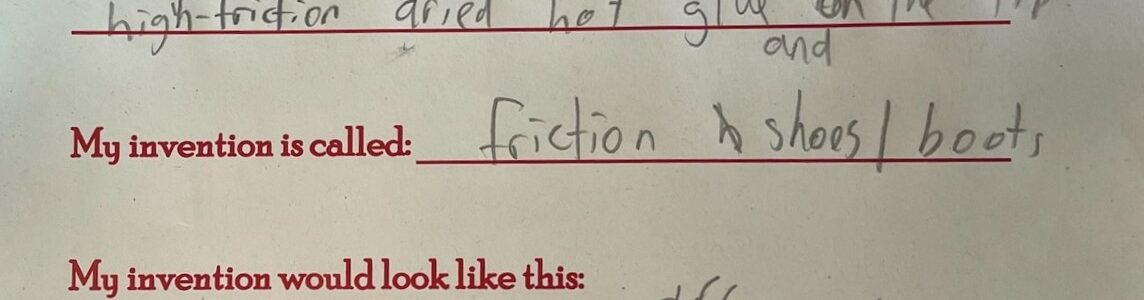 high-friction dried hot glue on the
and
My invention is called: friction shoes/boots
My invention would look like this: